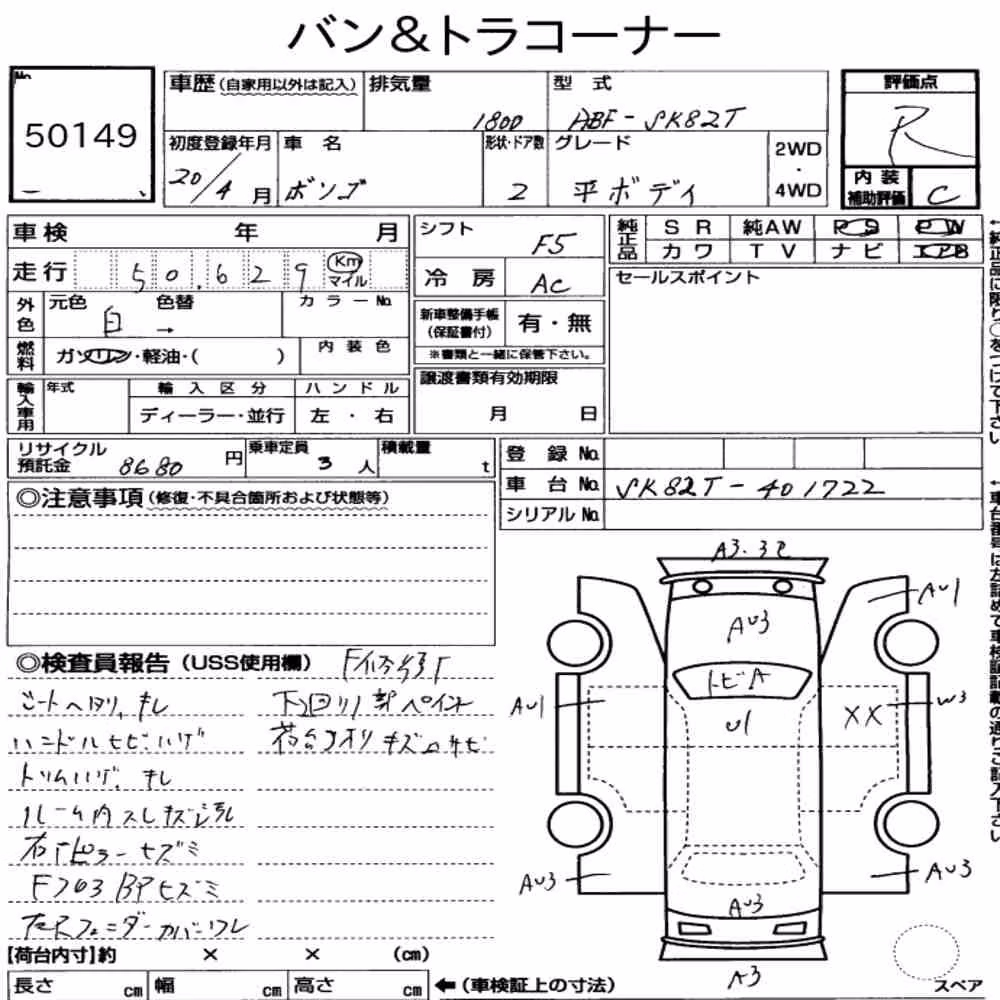 バン&トラコーナー
No.
50149
車歴(自家用以外は記入) 排気量 型 式 評価点
1800 ABF-SK82T R
初度登録年月 車 名 形状・ドア数 グレード 2WD・4WD
20/4月 ボンゴ 2 平ボディ
内装補助評価 C
車検 年 月
シフト F5
純正品 SR 純AW PS PW
カワ TV ナビ エアB
走行 50,629 Km マイル
冷房 AC
セールスポイント
外色 元色 白 色替 → カラーNo.
新車整備手帳(保証書付) 有・無
※書類と一緒に保管下さい。
燃料 ガソリン・軽油・( ) 内装色
譲渡書類有効期限
月 日
輸入車用 年式 輸入区分 ハンドル
ディーラー・並行 左・右
リサイクル預託金 8680 円 乗車定員 3 人 積載量 t
登録No.
車台No. SK82T-401722
シリアルNo.
◎注意事項(修復・不具合箇所および状態等)
◎検査員報告(USS使用欄)
シートヘタリ、キレ
ハンドル ハゲ
トリムハゲ、キレ
ルーム内スレキズ汚れ
下回り ペイント
荷台 キズ サビ
A3
AU3
トビA
U1
AU1
AU1
XX
W3
AU3
AU3
AU3
A3
スペア
【荷台内寸】約 × × (cm)
長さ cm 幅 cm 高さ cm ←(車検証上の寸法)
←純正品に限り○をつけて下さい
←車台番号は左詰めで車検証記載の通りご記入下さい